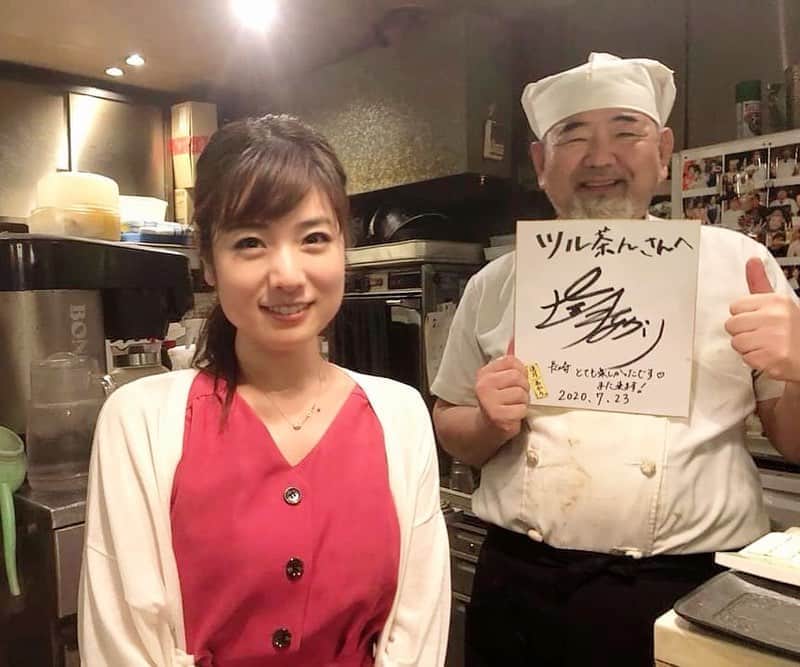 ツル茶んさんへ
長崎 とても楽しかったです♡
また来ます!
2020.7.23
BON